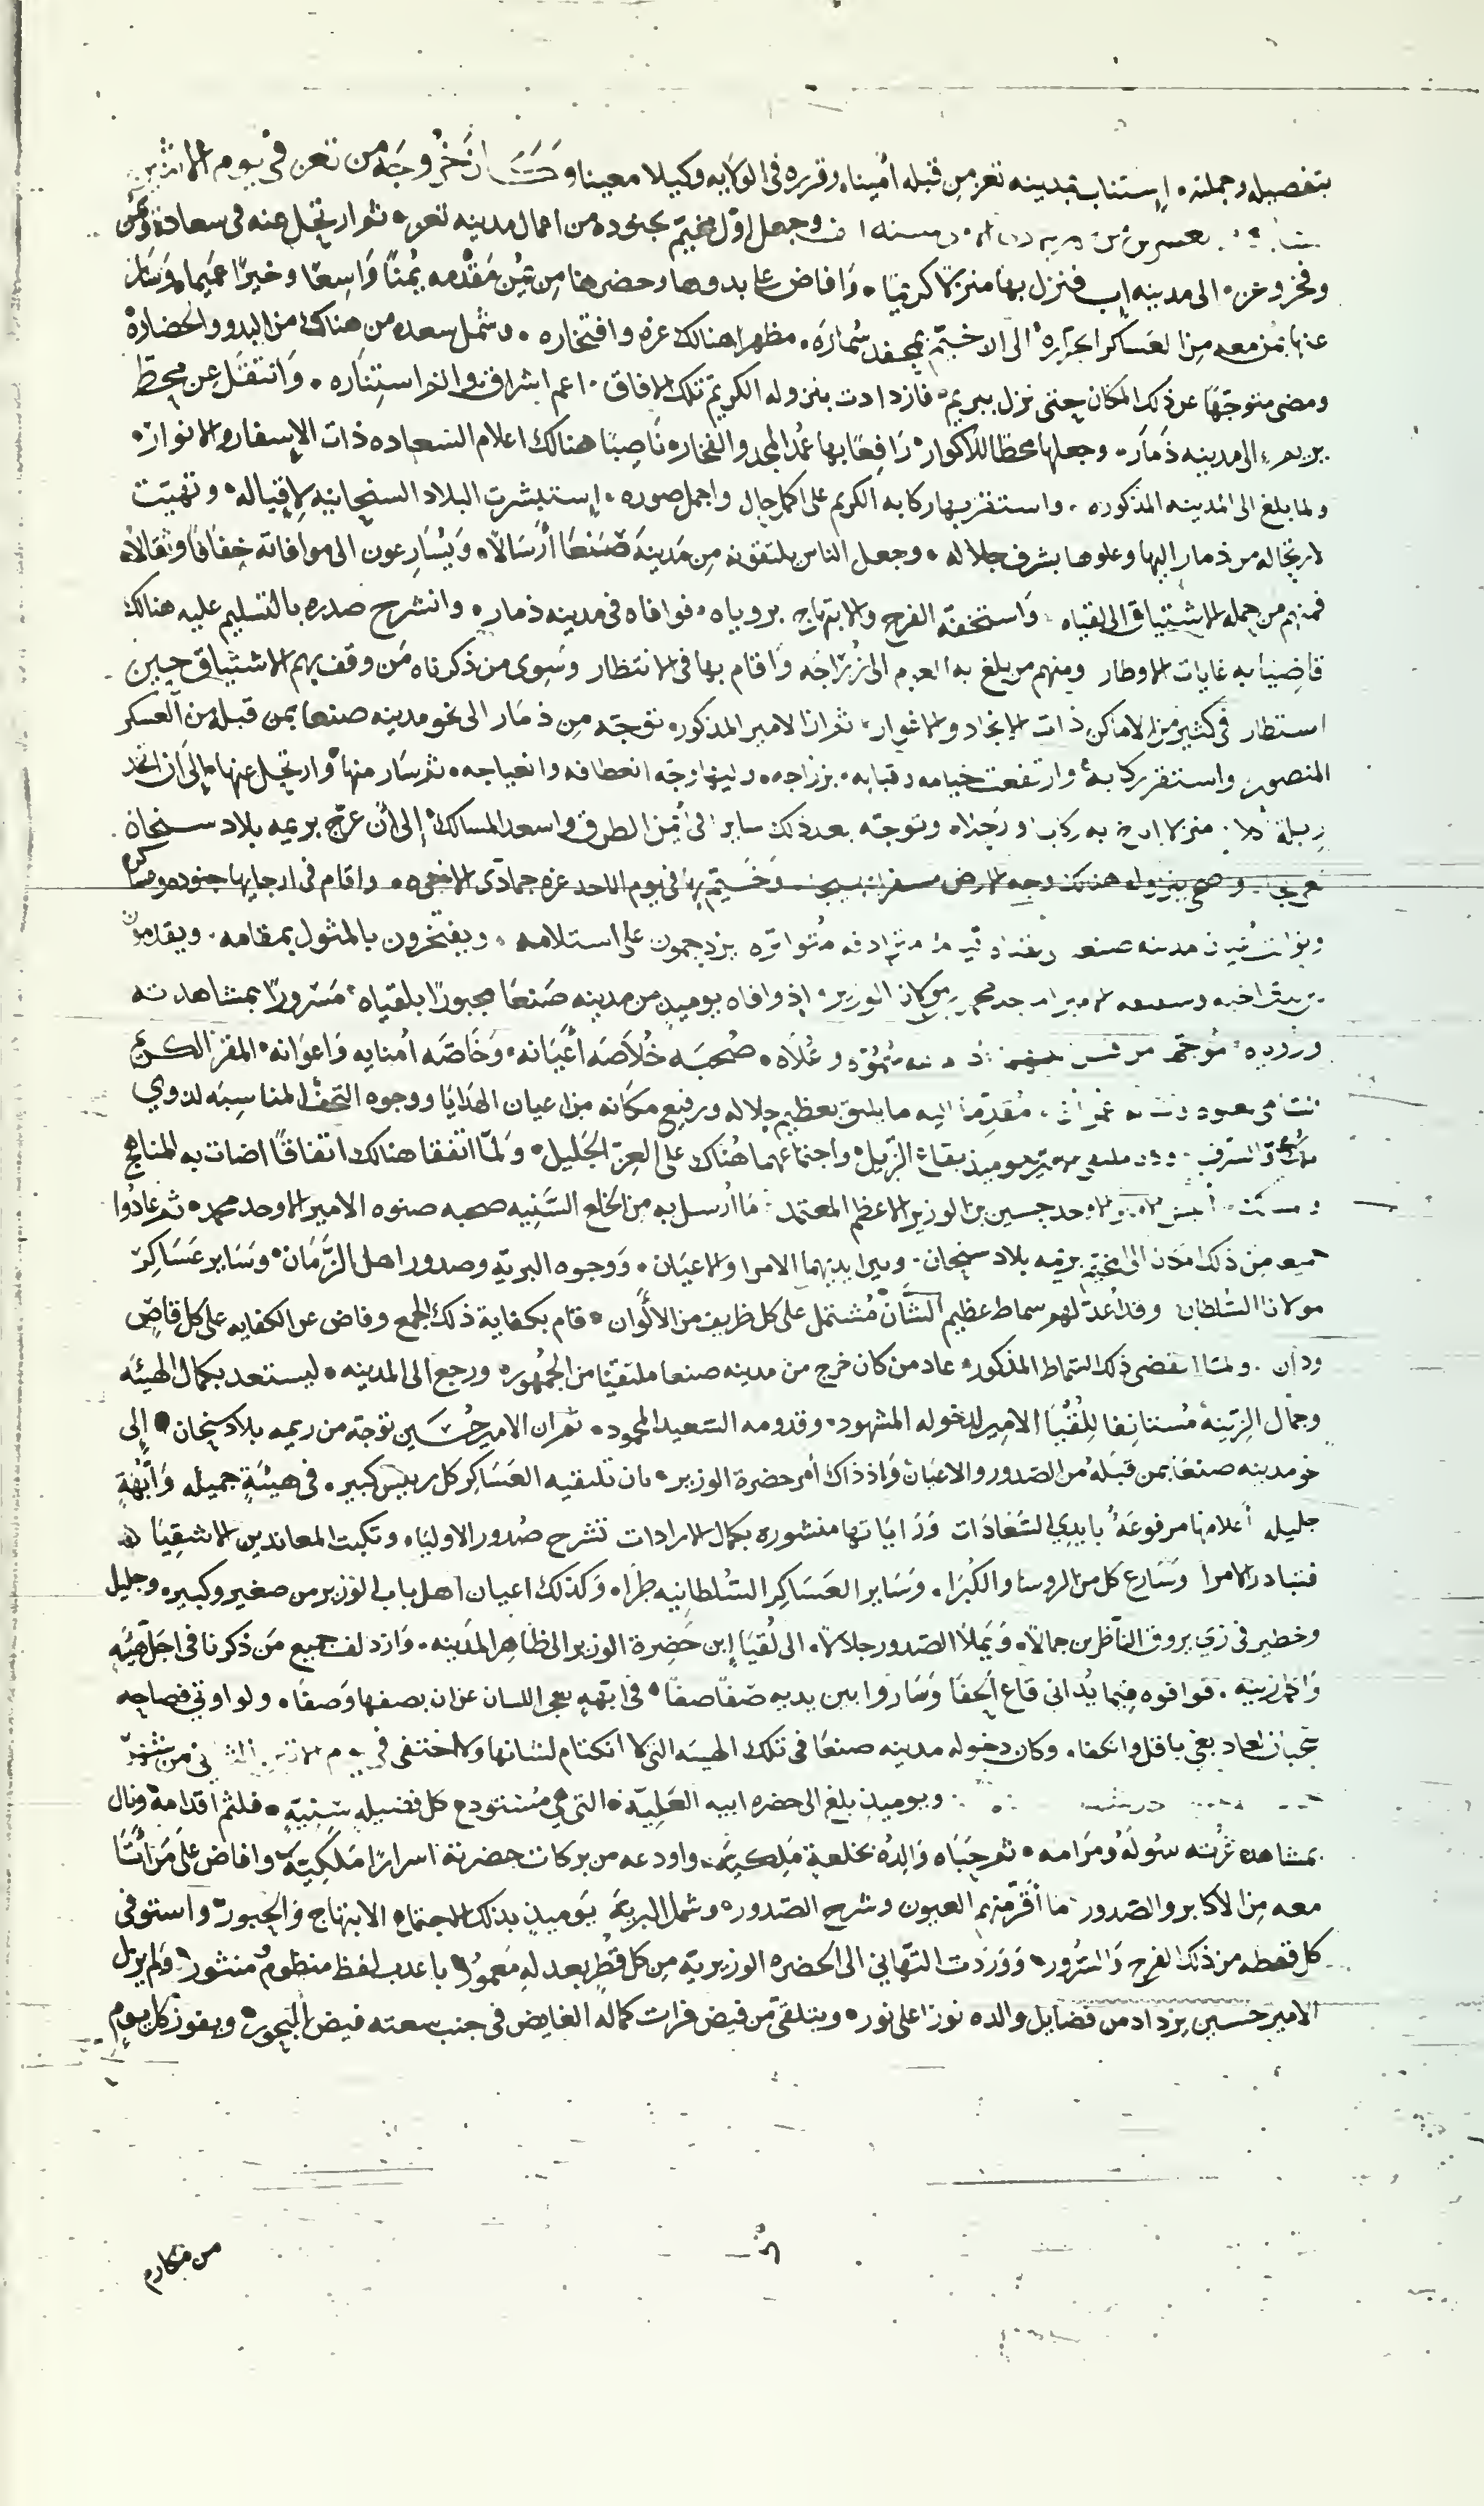 بتفصيله وجملته، إستناب بمدينه تعز من قبله أميناه وقرره فى الولايه وكيلا معينا وكان خروجه من تعز فى يوم الاثنين
وجعل اوّل مخيّم بجنوده من اعمال مدينه تعزه ثم ارتحل عنه فى سعادة
وفخر وعز، الى مدينه إب فنزل بها منزلا كريما، وَافاض على بدوها وحضرها مِن يُمن مَقْدمه يُمناً وَاسِعًا وخيرًا عَميما، وَسَار
عنها بمن معه مِن العَساكر الجرّاره الى ان خيّم بمحفد سُمارَه، مظهرا هنالك عزه وافتخاره، وشمل سعده من هناك من البدو والحضاره
ومضى متوجّهًا عن ذلك المكان حتى نزل بيريم، فازدادت بنزوله الكريم تلك الافاق، اعم اشراق وانور استِنَاره، وَانتقَلَ عن محطّ
يريم، الى مدينه ذمَار، وجعلها محطّا للاكوار، رَافِعًا بها عمُد المجد والفخار، نَاصِبًا هنالك اعلام السّعاده ذات الإسفار والانوار،
ولما بلغ الى المدينه المذكوره، واستقر بها ركابه الكريم على اكمل حال واجمل صوره، إستبشرت البلاد السنحانيّه لاقباله، وتهيّت
لارتحاله من ذمار إليها وعلوها بشرف جلاله، وجعل الناس يلتقونه مِن مَدينة صَنعَا أرْسَالًا، وَيُسَارِعون الى موافاته خِفافًا وثقالًا،
فمنهم من حمله الاشتياق الى لقياه، وَاستخفّه الفرح والابتهاج برؤياه، فوافاه فى مدينه ذمار، وانشرح صدره بالتسليم عليه هنالك
قاضِيًا به غايات الاوطار ومنهم من بلغ به العزم الى زُرَاجَه وَاقام بها فى الانتظار وسَوى من ذكرناه مَن وقف بهم الاشتياق حين
استطار فى كثير من الاماكن ذات الانجاد والاغوار، ثم ان الامير المذكور، توجّه مِن ذمَار الى نحو مدينه صنعا بمن قبله من العسكر
المنصور، واستقر ركابه، وارتفعت خيامه وقبابه، بزراجه، انعطافه وانعياجه، ثم سَار منها، وارتحل عنها، إلى أن اتخذ
منزلا وتوجّه بعد ذلك سايرا فى أيمن الطرق واسعد المسالك، إلى أن عرّج بريمه بلاد سنحان
بنزوله هنالك وجه الارض وَخَيّم بها فى يوم الاحد غره جمادى الاخرى، واقام فى ارجايها جنوده وعساكره
مدينه صنعا مترادفه مُتواتره يزدحمون على استلامه، ويفتخرون بالمثول بمقامه، ويقدمون
إذ وافاه يوميذ من مدينه صَنعَا محبورًا بلقياه، مَسْرورًا بمشاهدته
ورؤياه، وعُلَاه، صُحبَه خُلاصَه أعْيَانه، وَخاصّه أمنايه وَاعوَانه، المقر الكريم
مُقدِّمًا اليه ما يليق بعظيم جلاله ورفيع مكانه مِن اعيان الهَدَايا ووجوه التحَف المناسِبَه لذوي
يوميذ بقاع الرّيل، واجتماعهما هُناك على العِزّ الجَليل، وَلَمّا اتفقا هنالك اتفاقًا اضات به المناهج
حسين بن الوزير الاعظم المعتمد، مَا ارْسل به من الخلع السَّنِيه صحبه صنوه الامير الاوحد محمد، ثم عَادُوا
جميعه مِن ذلك المكان الى مخيّم بريمه بلاد سنحان، وبين ايديهما الامرا والاعيَان، وَوجوه البريّه وصدور اهل الزَّمَان، وسَاير عَسَاكِرَ
مولانا السّلطان وقد اُعدّ لهم سماط عظيم الشَّان، مُشتمل على كل ظريف من الألْوان، قام بكفاية ذلك الجمع وفاض عن الكفايه على كل قاصٍ
ودان، ولمّا انقضى ذلك السّماط المذكور، عاد من كان خرج من مدينه صنعا ملتقيًا من الجُمهور، ورجع الى المدينه، ليستعد بكمال الهيئَه
وجمال الزّينه، مُستانفا لِلُقْيَا الامِير لدخوله المشهود، وقدومه السّعيد المحمود، ثم ان الامير حُسَين توجّه من ريمه بلاد سنحان، إلى
نحو مدينه صنعَا بمن قبَلَه من الصّدور والاعيان وَاذ ذاك أمر حضرة الوزير، بان تلتقيه العَسَاكِر كل رييس كبير، فى هيئةٍ جميله وَأبّهةٍ
جليله أعلامها مرفوعَهٌ بايدِي السّعَادَات وَرَاياتها منشوره بكمال الارادات تنشرح صُدور الاوليَاء وتكبت المعاندين الاشقِيَا
فتبادر الامرا وسَارع كل من الروسا والكُبَرَا، وَسَاير العَسَاكِر السّلطانيه طرّا، وَكذلك اعيان اهل باب الوزير من صغير وكبير، وجليل
وخطير فى زي يروق النّاظرين جمالًا، وَيملأ الصّدور جلالًا، الى لُقيَا إبن حَضِرة الوزير الى ظاهِر المدَينه، وَازدلف جميع مَن ذكرنا فى اجَلّ هَيئه
وَاكمل زينه، فوافوه فِيما يُدانى قاع الحَفَا وَسَاروا بين يديه صَفّا صفّا، فى ابّهه يعى اللسان عن ان يصفها وَصفَا، ولو اوتى فصاحه
سَحبان لعاد بعيّ باقل وانكفا، وكان دخوله مدينه صنعَا فى تلك الهيئه التى لا انكتام لشانها ولا اختفى فى يوم الاثنين الثانى من شهر
ويوميذ بلغ الى حضره ابيه العَلِيّة، التى هي مُستودع كل فضيلهٍ سَنِيّةٍ، فلثم أقدامه ونال
بمشاهده غرّته سُولَهُ ومَرَامه، ثم حَبَاه وَالِدُهُ بخلعةٍ مَلِكيّهٍ، واودعه من بركات حضرته اسرارًا مَلَكِيّة، وافاض على مَن أتَا
معه مِن الاكابر والصّدور ما أقرّ منهم العيون وشرح الصّدور، وشمل البريّة يَوميذٍ بذلك الاجتماع الابتهاج وَالحبور، واستوفى
كل قِسطه من ذلك الفرح وَالسّرُور، وَوَرَدت التّهاني الى الحضره الوزيريّه مِن كل قُطرٍ بعدله مَعمُور، باعذب لفظ منظومٍ منثور، وَلم يزل
الامير حسين يزداد من فضايل والده نورًا على نور، ويتلقىّ من فيض فرات كماله الفايض فى جنب سعته فيض البحور، ويفوز كل يومٍ
من مكارم